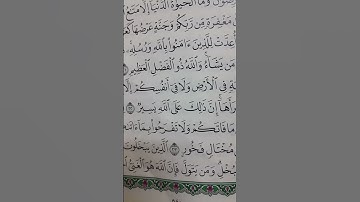 وَمَا ٱلْحَيَوٰةُ ٱلدُّنْيَآ إِلَّا مَتَٰعُ
مَغْفِرَةٍ مِّن رَّبِّكُمْ وَجَنَّةٍ عَرْضُهَا
أُعِدَّتْ لِلَّذِينَ ءَامَنُوا۟ بِٱللَّهِ وَرُسُلِهِۦ
مَن يَشَآءُ وَٱللَّهُ ذُو ٱلْفَضْلِ ٱلْعَظِيمِ ٢١
ةٍ فِى ٱلْأَرْضِ وَلَا فِىٓ أَنفُسِكُمْ إِلَّا
رَأَهَآ إِنَّ ذَٰلِكَ عَلَى ٱللَّهِ يَسِيرٌ ٢٢
مَا فَاتَكُمْ وَلَا تَفْرَحُوا۟ بِمَآ ءَاتَىٰ
مُخْتَالٍ فَخُورٍ ٢٣ ٱلَّذِينَ يَبْخَلُونَ
بُخْلِ وَمَن يَتَوَلَّ فَإِنَّ ٱللَّهَ هُوَ ٱلْغَنِىُّ